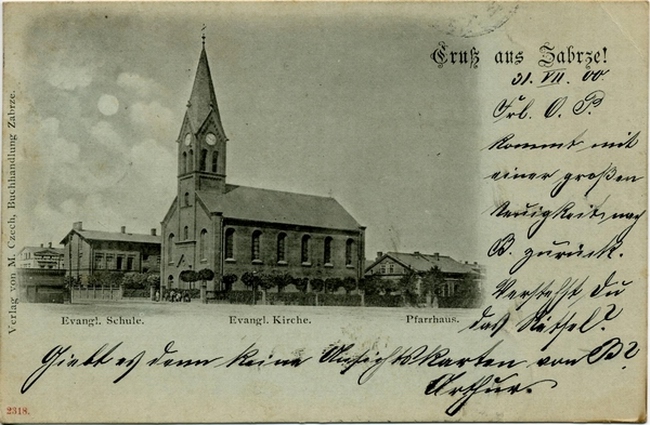 Gruß aus Zabrze!
31. VII. 00.
Frl. O. P.
kommt mit
einer großen
Neuigkeit nach
B. zurück.
Verstehst Du
das Rätsel?
Giebt es denn keine Ansichtskarten von B?
Arthur.
Evangl. Schule.
Evangl. Kirche.
Pfarrhaus.
Verlag von M. Czech, Buchhandlung Zabrze.
2318.